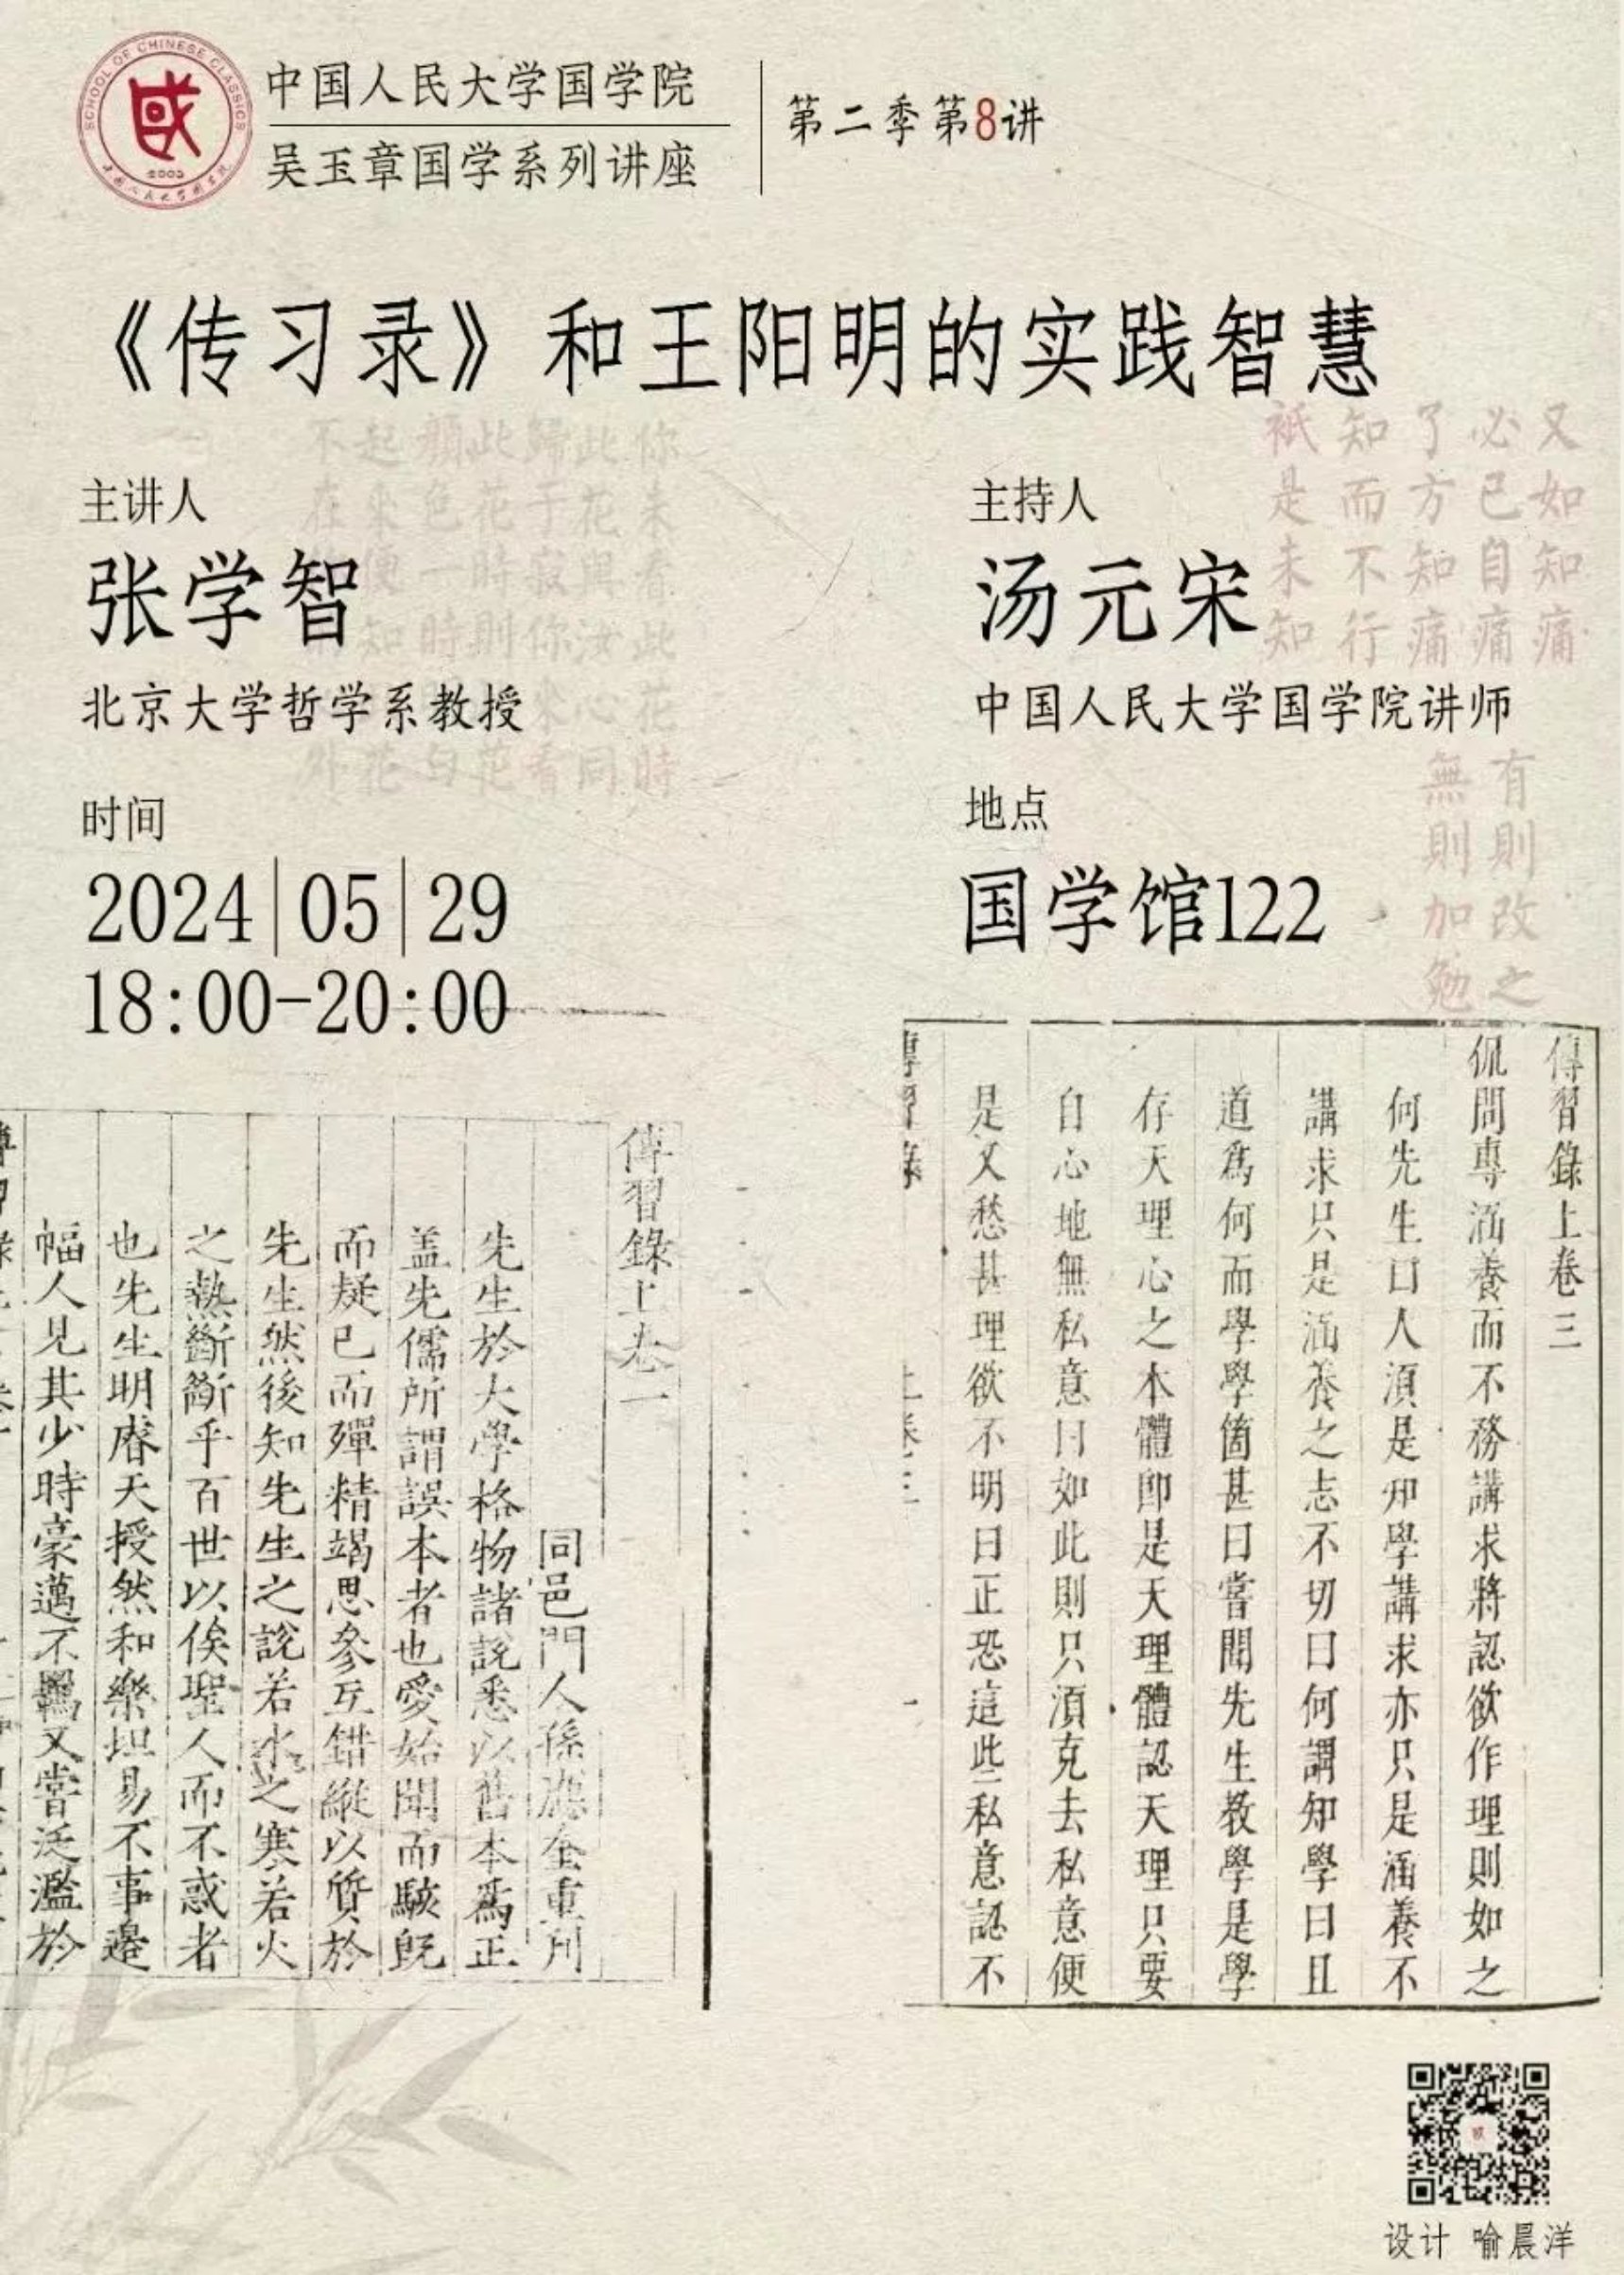 SCHOOL OF CHINESE CLASSICS
2005
中国人民大学国学院
吴玉章国学系列讲座
第二季第8讲
《传习录》和王阳明的实践智慧
主讲人
张学智
北京大学哲学系教授
主持人
汤元宋
中国人民大学国学院讲师
时间
2024|05|29
18:00-20:00
地点
国学馆122
又如知痛
必已自痛
了方知痛
知而不行
祇是未知
有則改之
無則加勉
你未看此花時
此花與汝心同
歸于寂你來看
此花時則
顏色一時
起來便知
傳習錄上卷三
侃問專涵養而不務講求將認欲作理則如之
何先生曰人須是知學講求亦只是涵養不
講求只是涵養之志不切曰何謂知學曰且
道為何而學學箇甚曰嘗聞先生教學是學
存天理心之本體即是天理體認天理只要
自心地無私意曰如此則只須克去私意便
是又愁甚理欲不明曰正恐這些私意認不
傳習錄
上卷三
傳習錄上卷一
同邑門人孫應奎重刊
先生於大學格物諸說悉以舊本為正
蓋先儒所謂誤本者也愛始聞而駭既
而疑已而殫精竭思參互錯縱以質於
先生然後知先生之說若水之寒若火
之熱斷斷乎百世以俟聖人而不惑者
也先生明睿天授然和樂坦易不事邊
幅人見其少時豪邁不羈又嘗泛濫於
设计 喻晨洋